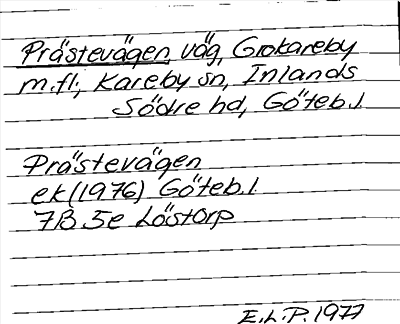 Prästevägen, väg, Grokareby
m.fl., Kareby sn, Inlands
Södre hd, Göteb.l.
Prästevägen
ek (1976) Göteb.l.
7B 5e Löstorp
E.L.P. 1977